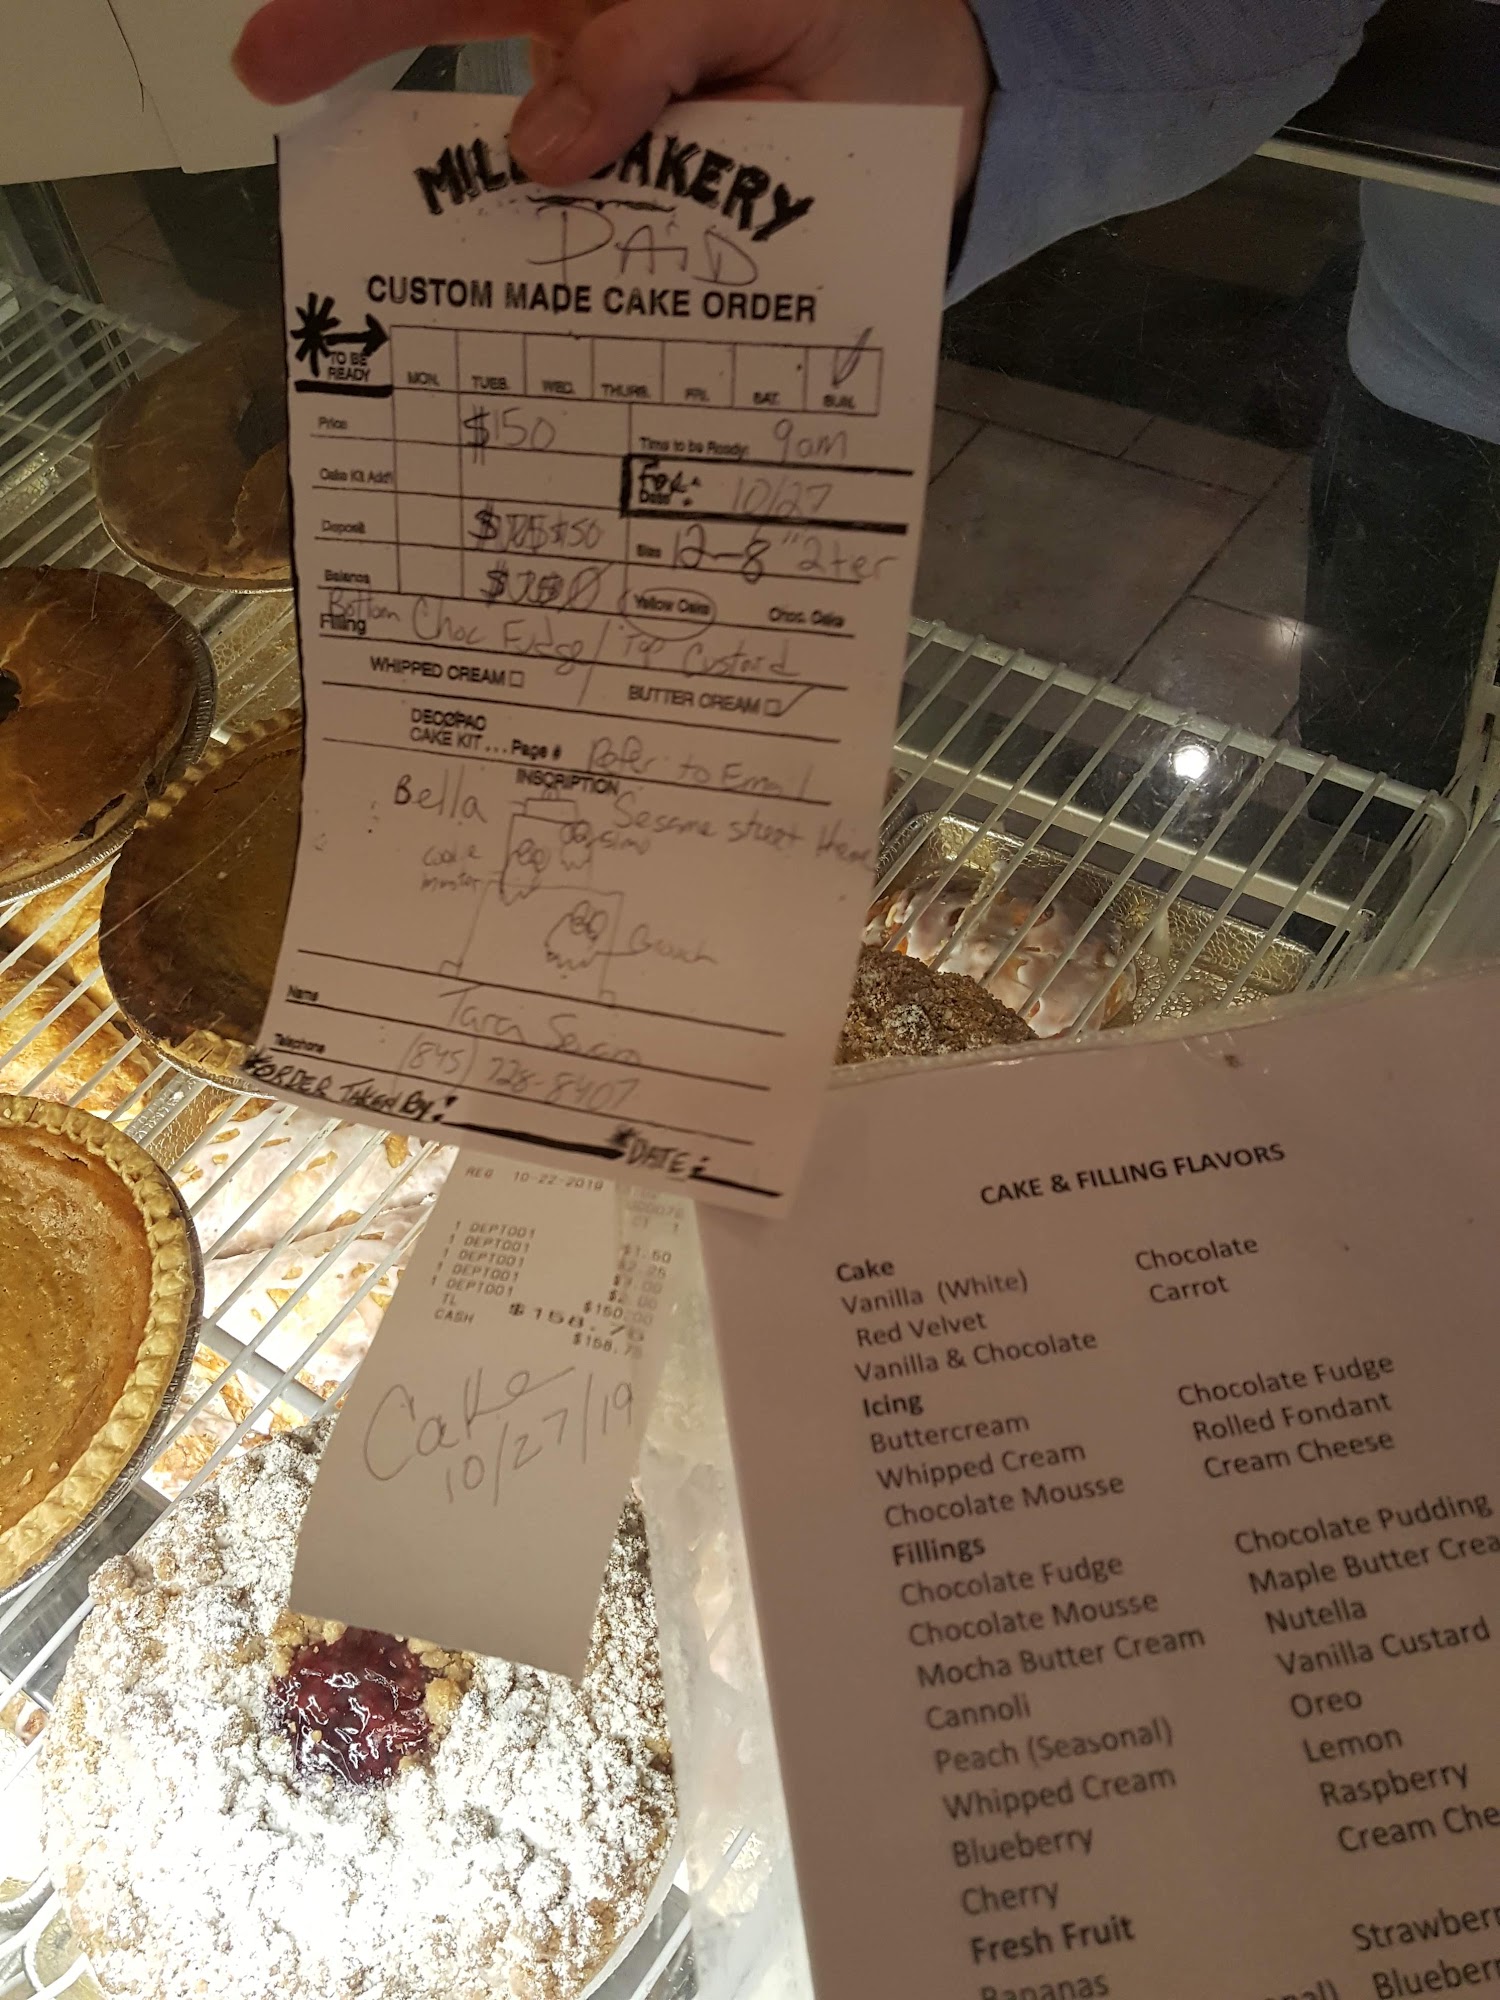 BAKERY
PAiD
CUSTOM MADE CAKE ORDER
TO BE READY
MON. TUES. WED. THURS. FRI. SAT. SUN.
Price $150 Time to be Ready: 9am
Cake Kit Add'l For: Date: 10/27
Deposit $150 Size 12-8" 2ter
Balance Yellow Cake Choc. Cake
Filling Bottom Choc Fudge/Top Custard
WHIPPED CREAM BUTTER CREAM
DECOPAC
CAKE KIT... Page # Refer to Email
INSCRIPTION
Bella Sesame street theme
Cookie
Name Tara
Telephone (845) 728-8407
*ORDER TAKEN BY: *DATE:
REG 10-22-2019
CT 1
1 DEPT001 $1.50
1 DEPT001 $2.25
1 DEPT001
1 DEPT001 $2.00
1 DEPT001 $150.00
TL $158.75
CASH $158.75
Cake
10/27/19
CAKE & FILLING FLAVORS
Cake
Vanilla (White) Chocolate
Red Velvet Carrot
Vanilla & Chocolate
Icing
Buttercream Chocolate Fudge
Whipped Cream Rolled Fondant
Chocolate Mousse Cream Cheese
Fillings
Chocolate Fudge Chocolate Pudding
Chocolate Mousse Maple Butter Crea
Mocha Butter Cream Nutella
Cannoli Vanilla Custard
Peach (Seasonal) Oreo
Whipped Cream Lemon
Blueberry Raspberry
Cherry Cream Che
Fresh Fruit
Bananas Strawberr
Blueber